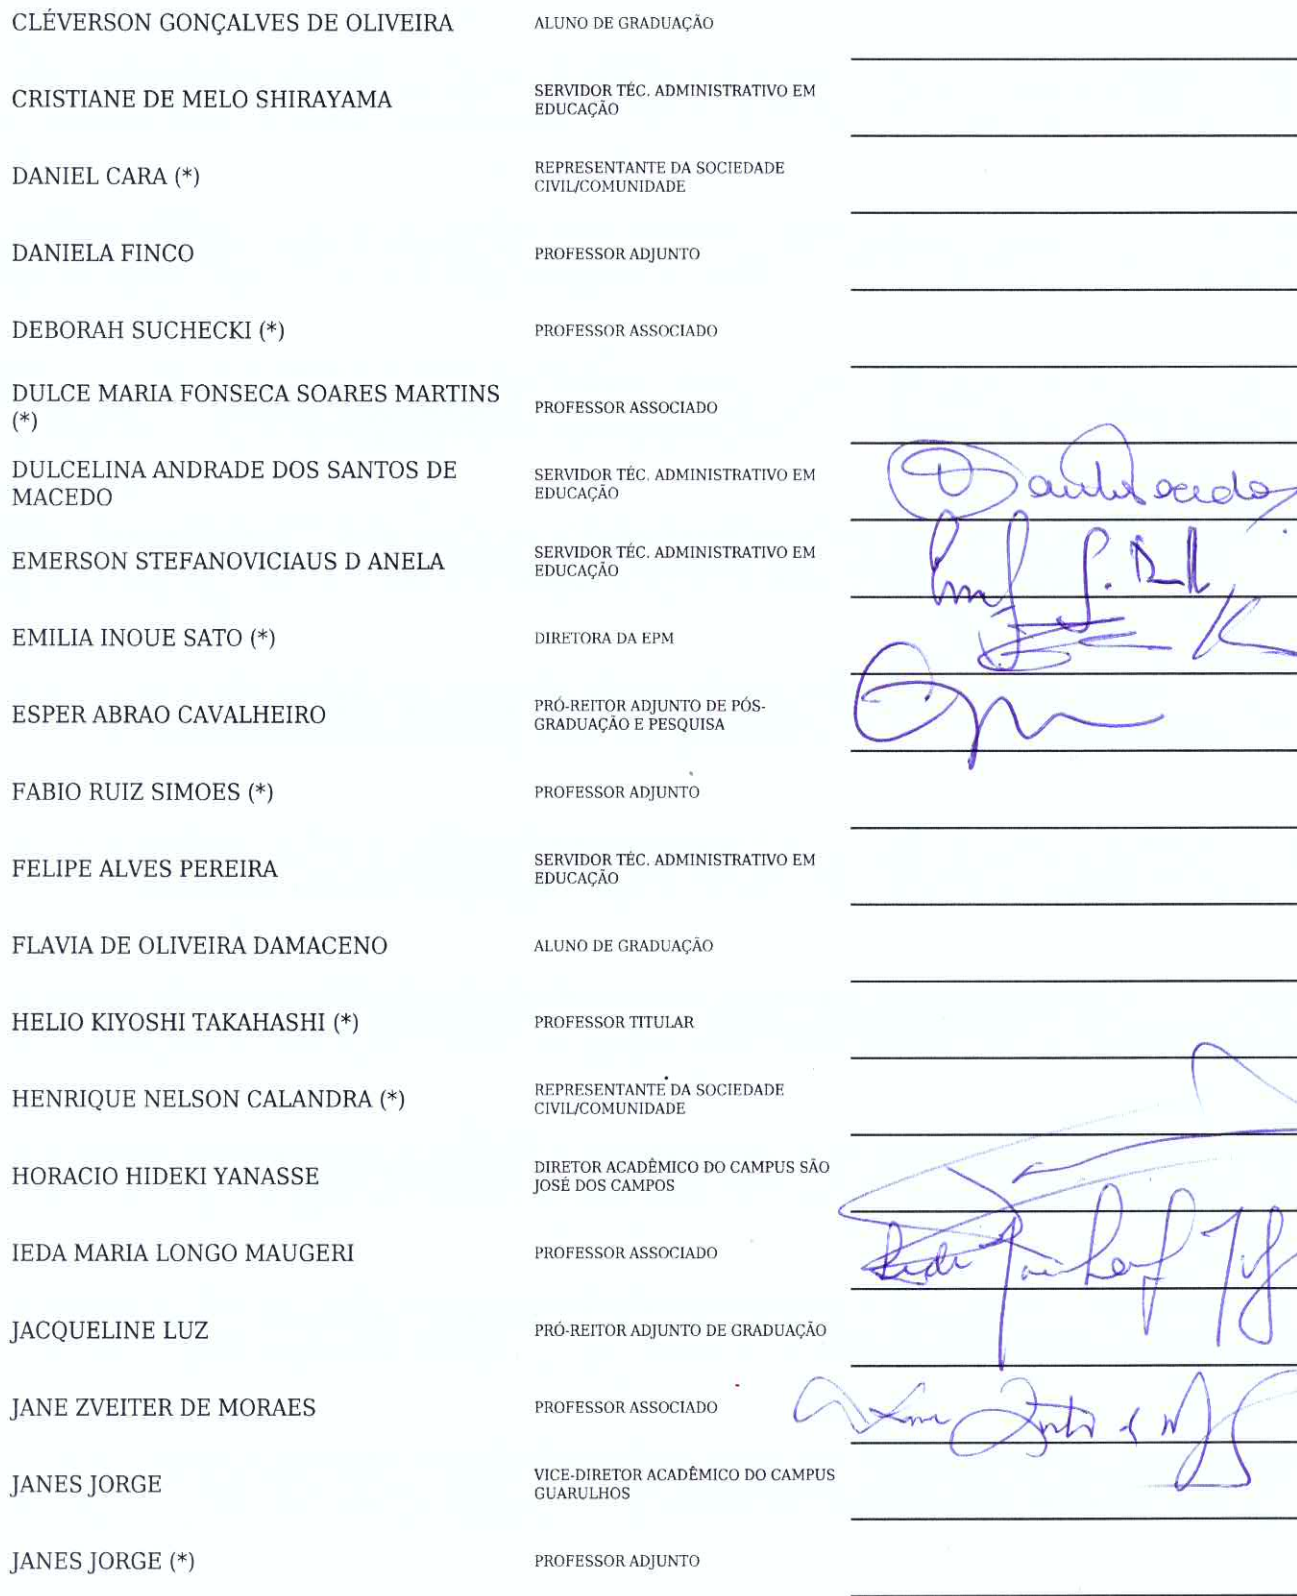 CLÉVERSON GONÇALVES DE OLIVEIRA ALUNO DE GRADUAÇÃO
CRISTIANE DE MELO SHIRAYAMA SERVIDOR TÉC. ADMINISTRATIVO EM
EDUCAÇÃO
DANIEL CARA (*) REPRESENTANTE DA SOCIEDADE
CIVIL/COMUNIDADE
DANIELA FINCO PROFESSOR ADJUNTO
DEBORAH SUCHECKI (*) PROFESSOR ASSOCIADO
DULCE MARIA FONSECA SOARES MARTINS
(*) PROFESSOR ASSOCIADO
DULCELINA ANDRADE DOS SANTOS DE
MACEDO SERVIDOR TÉC. ADMINISTRATIVO EM
EDUCAÇÃO
EMERSON STEFANOVICIAUS D ANELA SERVIDOR TÉC. ADMINISTRATIVO EM
EDUCAÇÃO
EMILIA INOUE SATO (*) DIRETORA DA EPM
ESPER ABRAO CAVALHEIRO PRÓ-REITOR ADJUNTO DE PÓS-
GRADUAÇÃO E PESQUISA
FABIO RUIZ SIMOES (*) PROFESSOR ADJUNTO
FELIPE ALVES PEREIRA SERVIDOR TÉC. ADMINISTRATIVO EM
EDUCAÇÃO
FLAVIA DE OLIVEIRA DAMACENO ALUNO DE GRADUAÇÃO
HELIO KIYOSHI TAKAHASHI (*) PROFESSOR TITULAR
HENRIQUE NELSON CALANDRA (*) REPRESENTANTE DA SOCIEDADE
CIVIL/COMUNIDADE
HORACIO HIDEKI YANASSE DIRETOR ACADÊMICO DO CAMPUS SÃO
JOSÉ DOS CAMPOS
IEDA MARIA LONGO MAUGERI PROFESSOR ASSOCIADO
JACQUELINE LUZ PRÓ-REITOR ADJUNTO DE GRADUAÇÃO
JANE ZVEITER DE MORAES PROFESSOR ASSOCIADO
JANES JORGE VICE-DIRETOR ACADÊMICO DO CAMPUS
GUARULHOS
JANES JORGE (*) PROFESSOR ADJUNTO